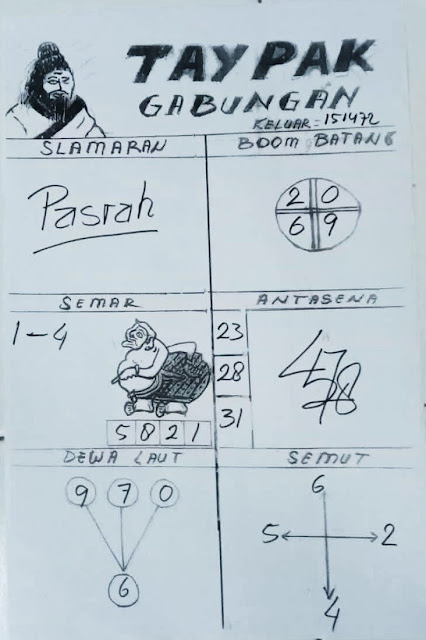 TAYPAK
GABUNGAN
KELUAR=151472
SLAMARAN
BOOM BATANG
Pasrah
2 0
6 9
SEMAR
ANTASENA
1-4
23
28
31
5 8 2 1
DEWA LAUT
SEMUT
9 7 0
6
6
5 2
4